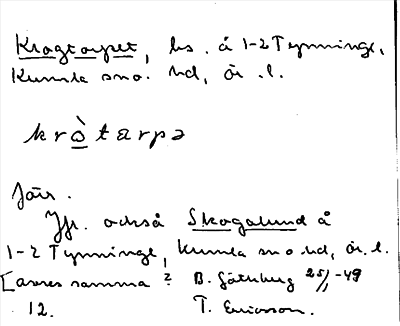 Krogtorpet, hs. å 1-2 Tynninge,
Kumla sn o. hd, Ör. l.
kròtarpə
Jfr. också Skogalund å
1-2 Tynninge, Kumla sn o. hd, Ör. l.
[avses samma? B. Götberg 25/1 -49
12. T. Ericsson.